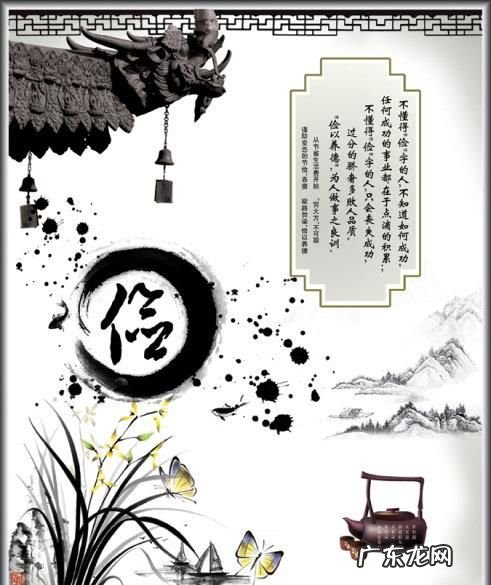 不懂得“俭”字的人,不知道如何成功,
任何成功的事业都在于点滴的积累;
不懂得“俭”字的人,只会丧失成功,
过分的骄奢多败人品质。
“俭以养德”,为人做事之良训。
从节省生活费开始 “穷大方”不可取
谨防变态的节俭:吝啬 欲路勿染,俭以养德
俭
广东龙网